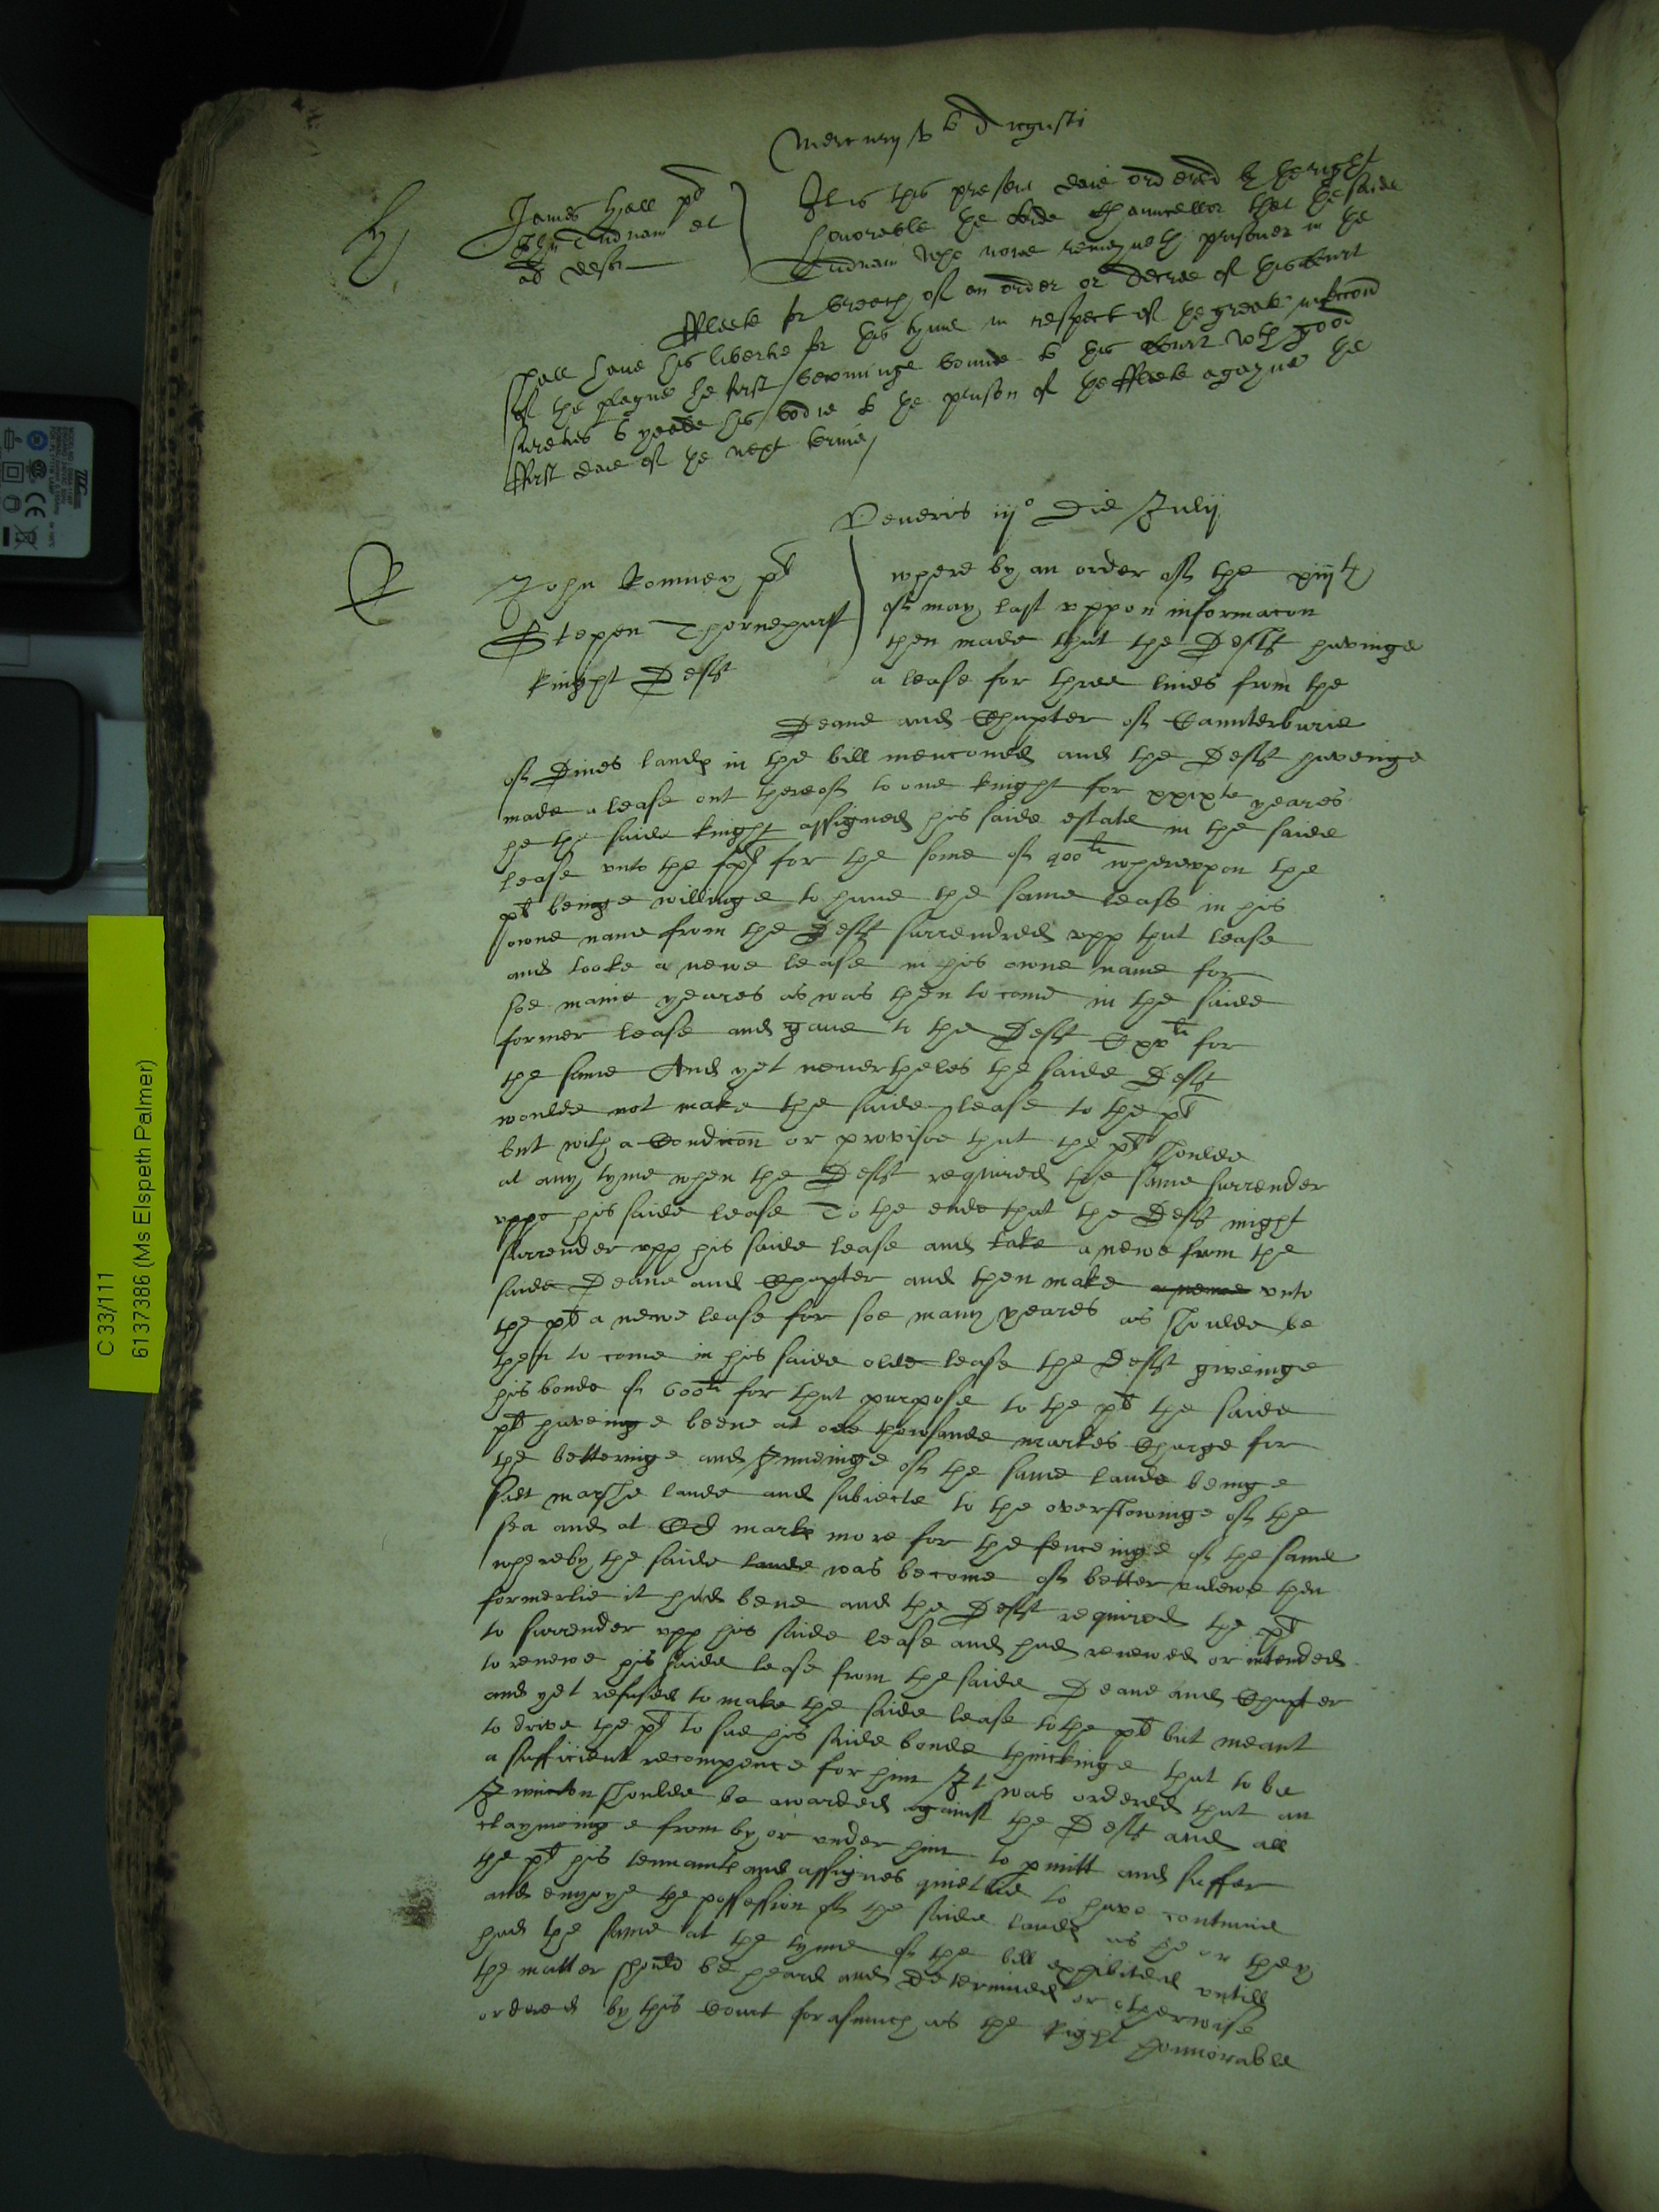 Mercurij Augusti
James Hall pl
Tidnam et
al def
It is this present daie ordered by the right
honorable the Lorde Chauncellor that the saide
Tidnam who nowe remayneth prisoner in the
Fleete for breach of an order or decree of this Court
shall have his libertie for this tyme in respect of the greate infeccon
of the plague he first becominge bounde to this Court with good
suerties to yeelde his bodie to the prison of the Fleete againe the
first daie of the next terme
Veneris iijo Die Julij
R
John Romney pl
Stephen Thornehurst
knight Deft
where by an order of the xiijth
of may last vppon informacon
then made that the Deft havinge
a lease for three lives from the
Deane and Chapter of Cannterburie
of Dives lands in the bill menconed and the Deft haveinge
made a lease out thereof to one knight for xxixte yeares
he the saide knight assigned his saide estate in the saide
lease vnto the pl for the some of 400li wherevpon the
pl beinge willinge to have the same lease in his
owne name from the Deft surrendred vpp that lease
and tooke a newe lease in his owne name for
soe manie yeares as was then to come in the saide
former lease and gave to the Deft Cxxli for
the same And yet neuertheles the saide Deft
woulde not make the saide lease to the pl
but with a Condicon or provisoe that the pl shoulde
at any tyme when the Deft required the same surrender
vppe his saide lease To the ende that the Deft might
surrender vpp his saide lease and take a newe from the
saide Deane and Chapter and then make a newe vnto
the pl a newe lease for soe many yeares as shoulde be
then to come in his saide olde lease the Deft giveinge
his bonde of 600li for that purpose to the pl the saide
pl haveinge beene at one thowsande markes Charge for
the betteringe and Inneinge of the same lande beinge
salt marshe lande and subiecte to the overflowinge of the
sea and at CC marks more for the fenceinge of the same
whereby the saide lande was become of better valewe then
formerlie it had bene and the Deft required the pl
to surrender vpp his saide lease and had renewed or intended
to renewe his saide lease from the saide Deane and Chapter
and yet refused to make the saide lease to the pl but meant
to drive the pl to sue his saide bonde thinckinge that to be
a sufficient recompence for him It was ordered that an
Iniuncton shoulde be awarded against the Deft and all
claymeinge from by or vnder him to pmitt and suffer
the pl his tennants and assignes quietlie to have contineu
and enyoye the possession of the saide lands as he or they
had the same at the tyme of the bill exhibited vntill
the matter should be heard and Determined or otherwise
ordered by this Court forasmuch as the Right honnorable
C 33/111
6137386 (Ms Elspeth Palmer)